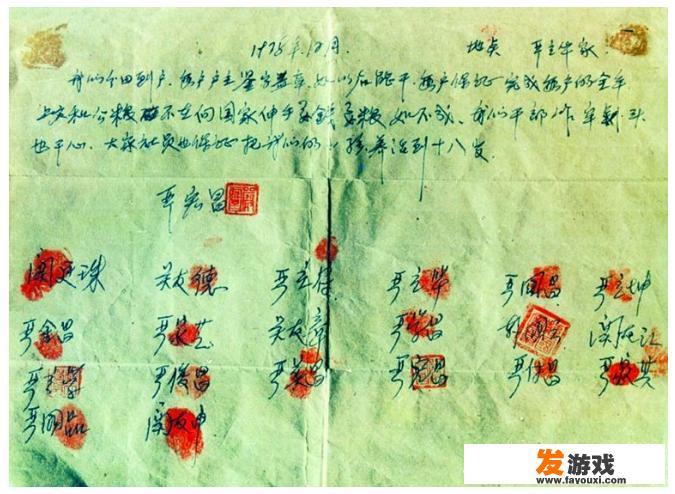 1978年12月. 地点 严立华家
我们分田到户,每户户主签字盖章,如以后能干,每户保证完成每户的全年
上交和公粮 不在向国家伸手要钱要粮 如不成,我们干部作牢刹头
也干心,大家社员也保证把我们的小孩养活到十八岁。
严宏昌
关廷珠 关友德 严立符 严立华 严国昌 严立坤
严金昌 严家芝 关友章 严学昌 韩国云 关友江
严立学 严俊昌 严美昌 严宏昌 严付昌 严家其
严国品 关友申
发游戏
www.fayouxi.com